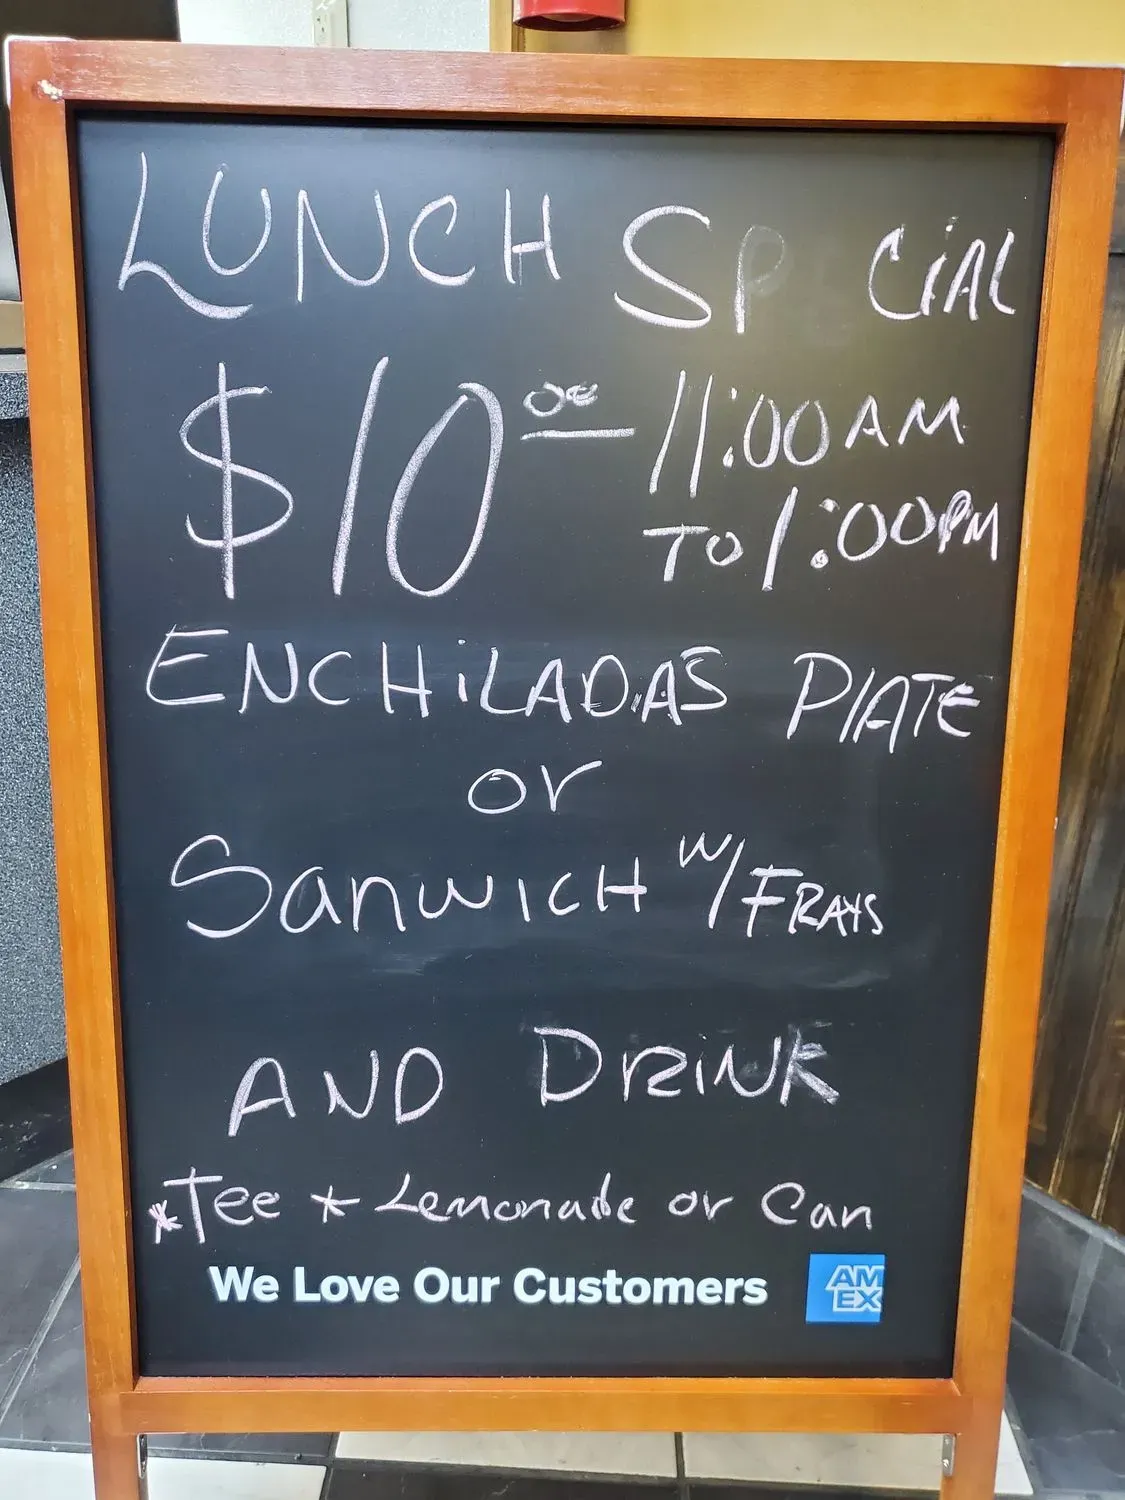 LUNCH SP CiAL
$10.00 11:00AM
TO 1:00PM
ENCHiLADAS PlATE
or
SanwicH w/ FRAYS
AND DRiNK
*Tee * Lemonade or Can
We Love Our Customers
AM
EX